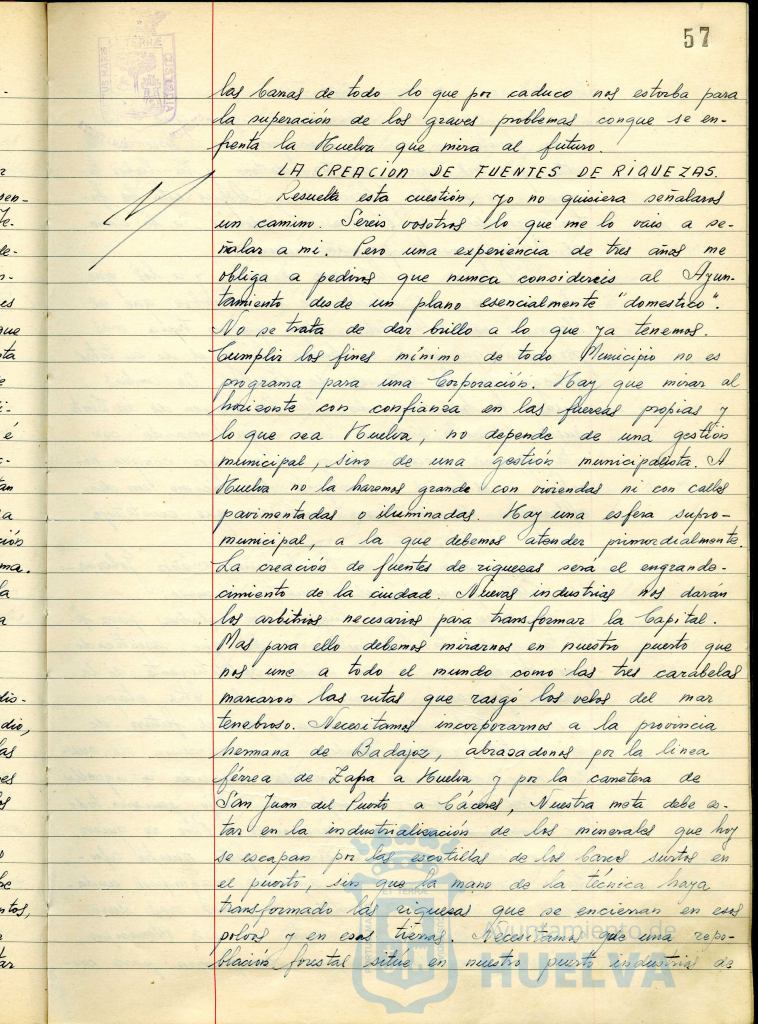 57
las canas de todo lo que por caduco nos estorba para
la superación de los graves problemas conque se en-
frenta la Huelva que mira al futuro.
LA CREACION DE FUENTES DE RIQUEZAS.
Resuelta esta cuestión, yo no quisiera señalaros
un camino. Sereis vosotros lo que me lo vais a se-
ñalar a mi. Pero una experiencia de tres años me
obliga a pediros que nunca considereis al Ayun-
tamiento desde un plano esencialmente "domestico".
No se trata de dar brillo a lo que ya tenemos.
Cumplir los fines mínimo de todo Municipio no es
programa para una Corporación. Hay que mirar al
horizonte con confianza en las fuerzas propias y
lo que sea Huelva, no depende de una gestión
municipal, sino de una gestión municipalista. A
Huelva no la haremos grande con viviendas ni con calles
pavimentadas o iluminadas. Hay una esfera supro-
municipal, a la que debemos atender primordialmente.
La creación de fuentes de riquezas será el engrande-
cimiento de la ciudad. Nuevas industrias nos darán
los arbitrios necesarios para transformar la Capital.
Mas para ello debemos mirarnos en nuestro puerto que
nos une a todo el mundo como las tres carabelas
marcaron las rutas que rasgó los velos del mar
tenebroso. Necesitamos incorporarnos a la provincia
hermana de Badajoz, abrazadonos por la linea
férrea de Zafra a Huelva y por la carretera de
San Juan del Puerto a Cáceres, Nuestra meta debe es-
tar en la industrialización de los minerales que hoy
se escapan por las escotillas de los barcos surtos en
el puerto, sin que la mano de la técnica haya
transformado las riquezas que se encierran en esos
polvos y en esas tierras. Necesitamos que una repo-
blación forestal situe en nuestro puerto industrias de
Ayuntamiento de
HUELVA